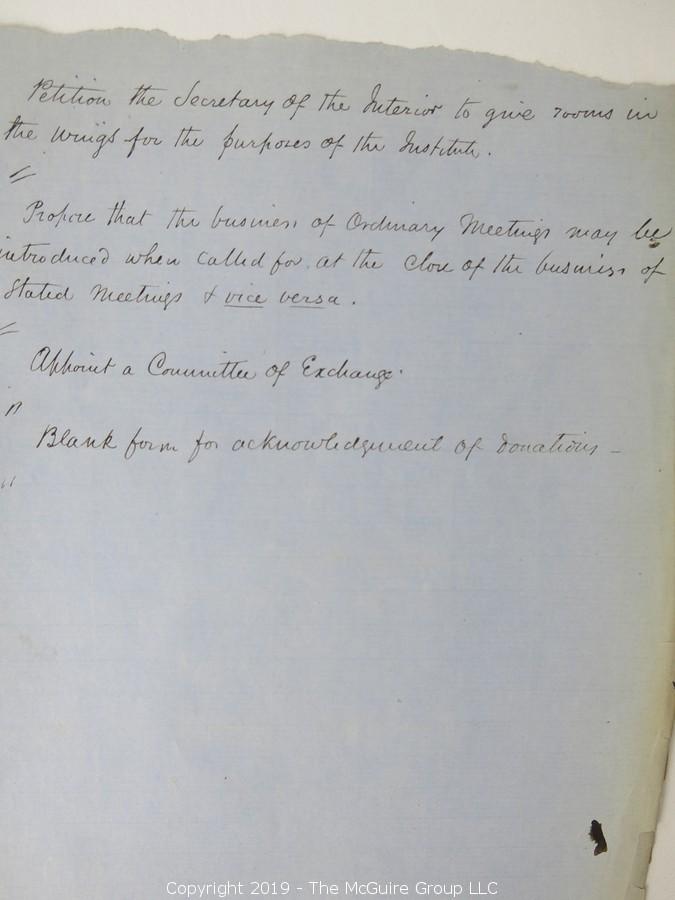 Petition the Secretary of the Interior to give rooms in
the wings for the purposes of the Institute.
"
Propose that the business of Ordinary Meetings may be
introduced when called for, at the close of the business of
Stated Meetings & vice versa.
"
Appoint a Committee of Exchange.
"
Blank form for acknowledgment of Donations –
"
Copyright 2019 - The McGuire Group LLC